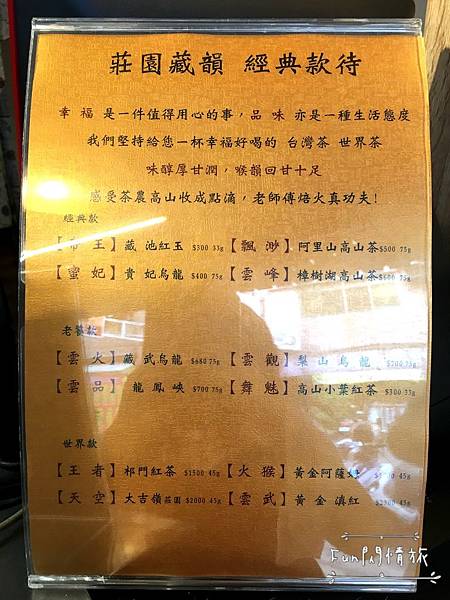 莊園藏韻 經典款待
幸 福 是一件值得用心的事，品 味 亦是一種生活態度
我們堅持給您一杯幸福好喝的 台灣茶 世界茶
味醇厚甘潤，喉韻回甘十足
感受茶農高山收成點滴，老師傅焙火真功夫!
經典款
【帝 王】藏 池紅玉 $300 33g 【飄 渺】阿里山高山茶$500 75g
【蜜 妃】貴 妃烏龍 $400 75g 【雲 峰】樟樹湖高山茶$600 75g
老饕款
【雲 火】藏 武烏龍 $680 75g 【雲 觀】梨 山 烏 龍 $700 75g
【雲 品】龍 鳳 峽 $700 75g 【舞 魅】高山小葉紅茶 $300 33g
世界款
【王 者】祁門紅茶 $1500 45g 【火 猴】黃金阿薩 45g
【天 空】大吉嶺莊園 $2000 45g 【雲 武】黃 金 滇紅 45g
Fun閃情旅